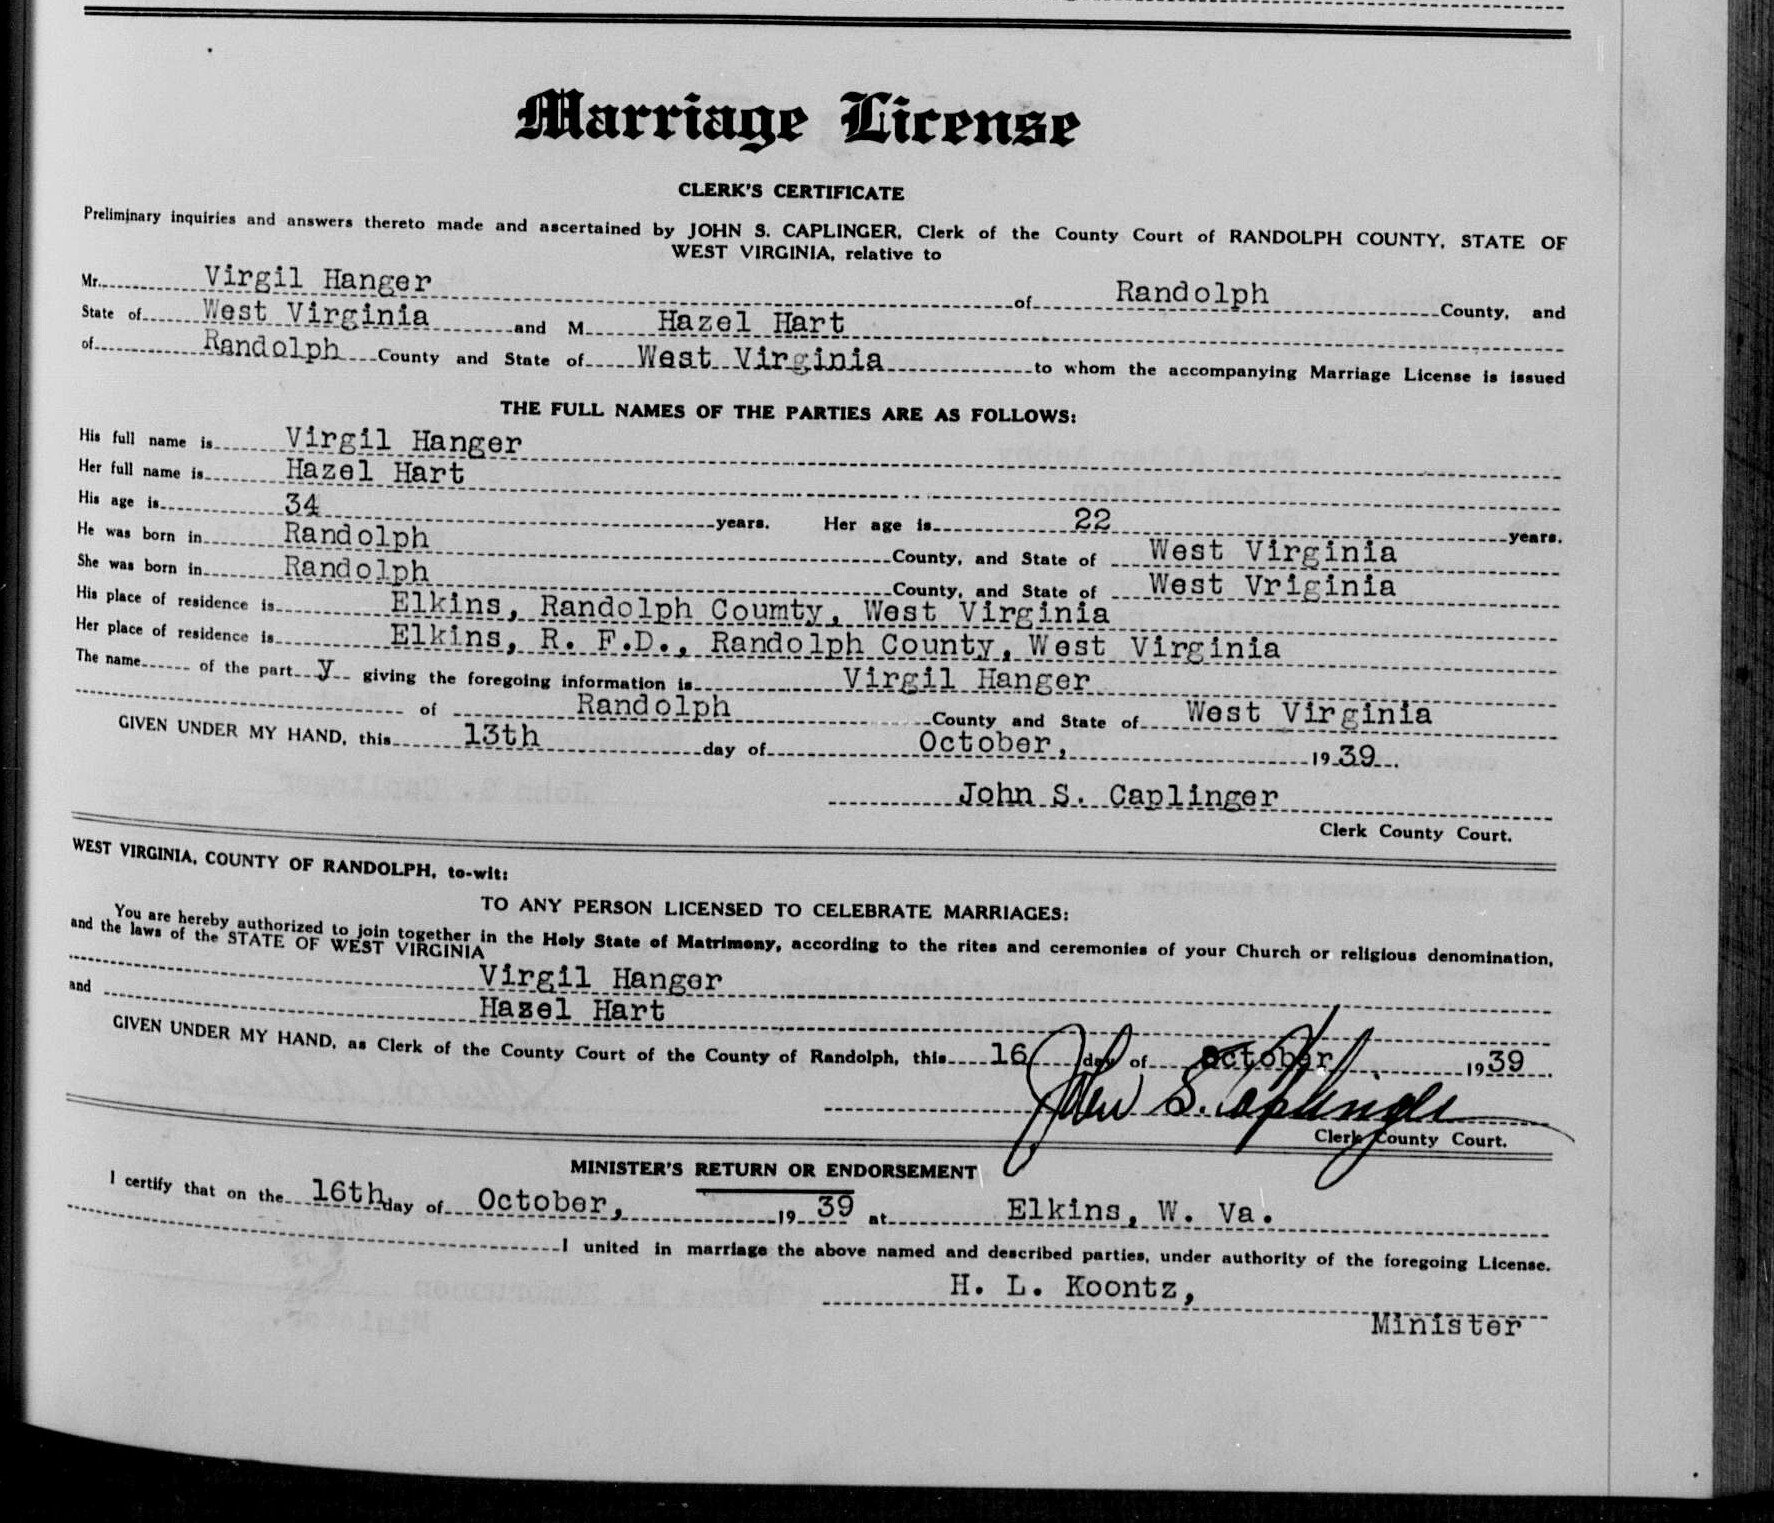 Marriage License
CLERK'S CERTIFICATE
Preliminary inquiries and answers thereto made and ascertained by JOHN S. CAPLINGER, Clerk of the County Court of RANDOLPH COUNTY, STATE OF
WEST VIRGINIA, relative to
Mr. Virgil Hanger of Randolph County, and
State of West Virginia and M Hazel Hart
of Randolph County and State of West Virginia to whom the accompanying Marriage License is issued
THE FULL NAMES OF THE PARTIES ARE AS FOLLOWS:
His full name is Virgil Hanger
Her full name is Hazel Hart
His age is 34 years. Her age is 22 years.
He was born in Randolph County, and State of West Virginia
She was born in Randolph County, and State of West Vriginia
His place of residence is Elkins, Randolph Coumty, West Virginia
Her place of residence is Elkins, R. F.D., Randolph County, West Virginia
The name of the part y giving the foregoing information is Virgil Hanger
of Randolph County and State of West Virginia
GIVEN UNDER MY HAND, this 13th day of October, 1939.
John S. Caplinger
Clerk County Court.
WEST VIRGINIA, COUNTY OF RANDOLPH, to-wit:
TO ANY PERSON LICENSED TO CELEBRATE MARRIAGES:
You are hereby authorized to join together in the Holy State of Matrimony, according to the rites and ceremonies of your Church or religious denomination,
and the laws of the STATE OF WEST VIRGINIA
Virgil Hanger
and Hazel Hart
GIVEN UNDER MY HAND, as Clerk of the County Court of the County of Randolph, this 16 day of October 1939.
John S. Caplinger
Clerk County Court.
MINISTER'S RETURN OR ENDORSEMENT
I certify that on the 16th day of October, 1939 at Elkins, W. Va.
I united in marriage the above named and described parties, under authority of the foregoing License.
H. L. Koontz,
Minister